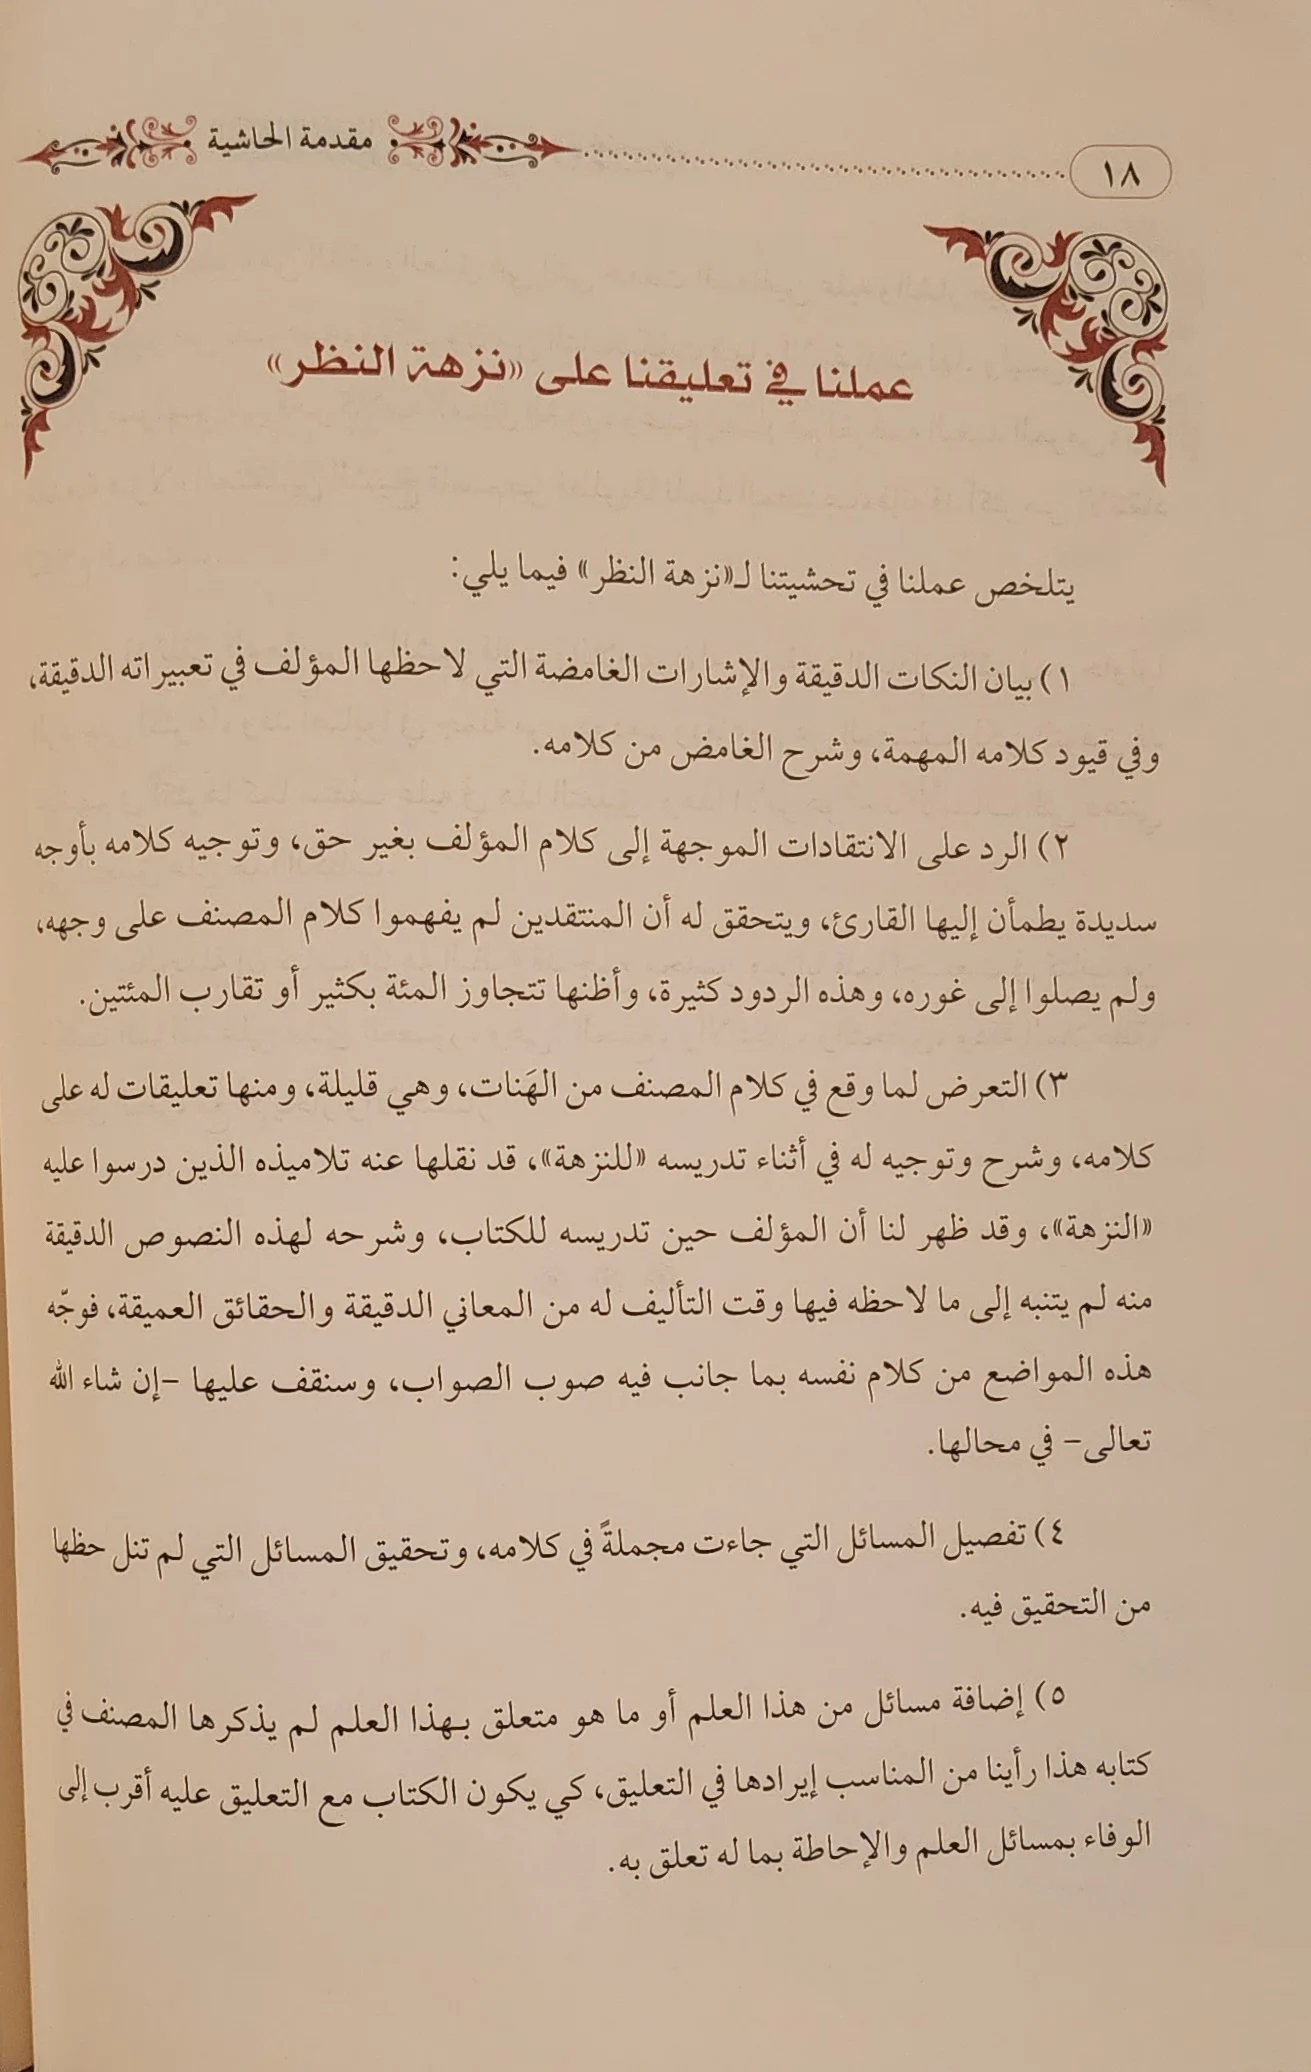 ١٨
مقدمة الحاشية
عملنا في تعليقنا على «نزهة النظر»
يتلخص عملنا في تحشيتنا لـ«نزهة النظر» فيما يلي:
١) بيان النكات الدقيقة والإشارات الغامضة التي لاحظها المؤلف في تعبيراته الدقيقة،
وفي قيود كلامه المهمة، وشرح الغامض من كلامه.
٢) الرد على الانتقادات الموجهة إلى كلام المؤلف بغير حق، وتوجيه كلامه بأوجه
سديدة يطمأن إليها القارئ، ويتحقق له أن المنتقدين لم يفهموا كلام المصنف على وجهه،
ولم يصلوا إلى غوره، وهذه الردود كثيرة، وأظنها تتجاوز المئة بكثير أو تقارب المئتين.
٣) التعرض لما وقع في كلام المصنف من الهَنات، وهي قليلة، ومنها تعليقات له على
كلامه، وشرح وتوجيه له في أثناء تدريسه «للنزهة»، قد نقلها عنه تلاميذه الذين درسوا عليه
«النزهة»، وقد ظهر لنا أن المؤلف حين تدريسه للكتاب، وشرحه لهذه النصوص الدقيقة
منه لم يتنبه إلى ما لاحظه فيها وقت التأليف له من المعاني الدقيقة والحقائق العميقة، فوجّه
هذه المواضع من كلام نفسه بما جانب فيه صوب الصواب، وسنقف عليها -إن شاء الله
تعالى- في محالها.
٤) تفصيل المسائل التي جاءت مجملةً في كلامه، وتحقيق المسائل التي لم تنل حظها
من التحقيق فيه.
٥) إضافة مسائل من هذا العلم أو ما هو متعلق بهذا العلم لم يذكرها المصنف في
كتابه هذا رأينا من المناسب إيرادها في التعليق، كي يكون الكتاب مع التعليق عليه أقرب إلى
الوفاء بمسائل العلم والإحاطة بما له تعلق به.